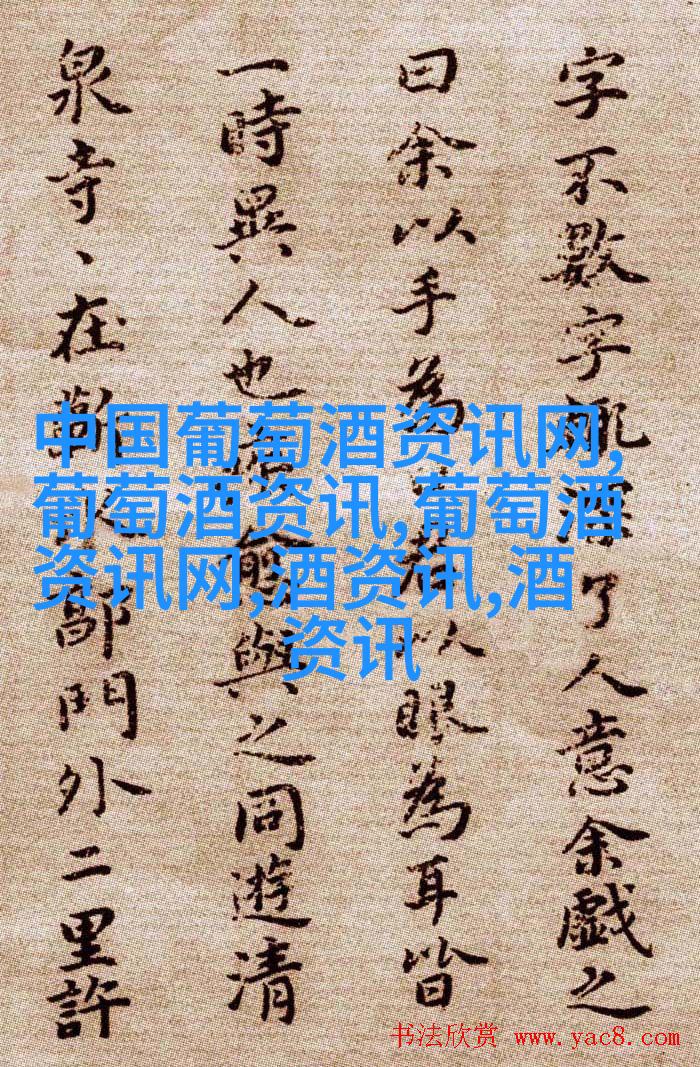 字不數字了人意余戲之
曰余以手為者以眼為耳皆
一時異人也愈與之同遊清
泉寺、在郭門外二里許
中国葡萄酒资讯网,
葡萄酒资讯,葡萄酒
资讯网,酒资讯,酒
资讯
书法欣赏 www.yac8.com